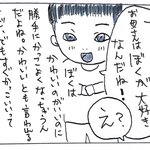 お母さんは
ぼくが
大好き
なんだね!
え?
ぼくは
かわいいのがいいのに
勝手にかっこよくなっちゃうん
だよね。かわいいとも言われる